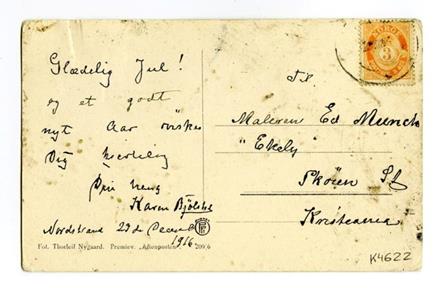 Glædelig Jul!
og et godt
nyt Aar ønskes
Dig hjertelig
Din
Karen Bjølstad
Nordstrand 23de Decemb
1916
Fot. Thorleif Nygaard. Premiev. „Aftenposten". 209/6
Til
Maleren Ed Munch
"Ekely"
Skøien St
Kristiania
NORGE
3
K4622